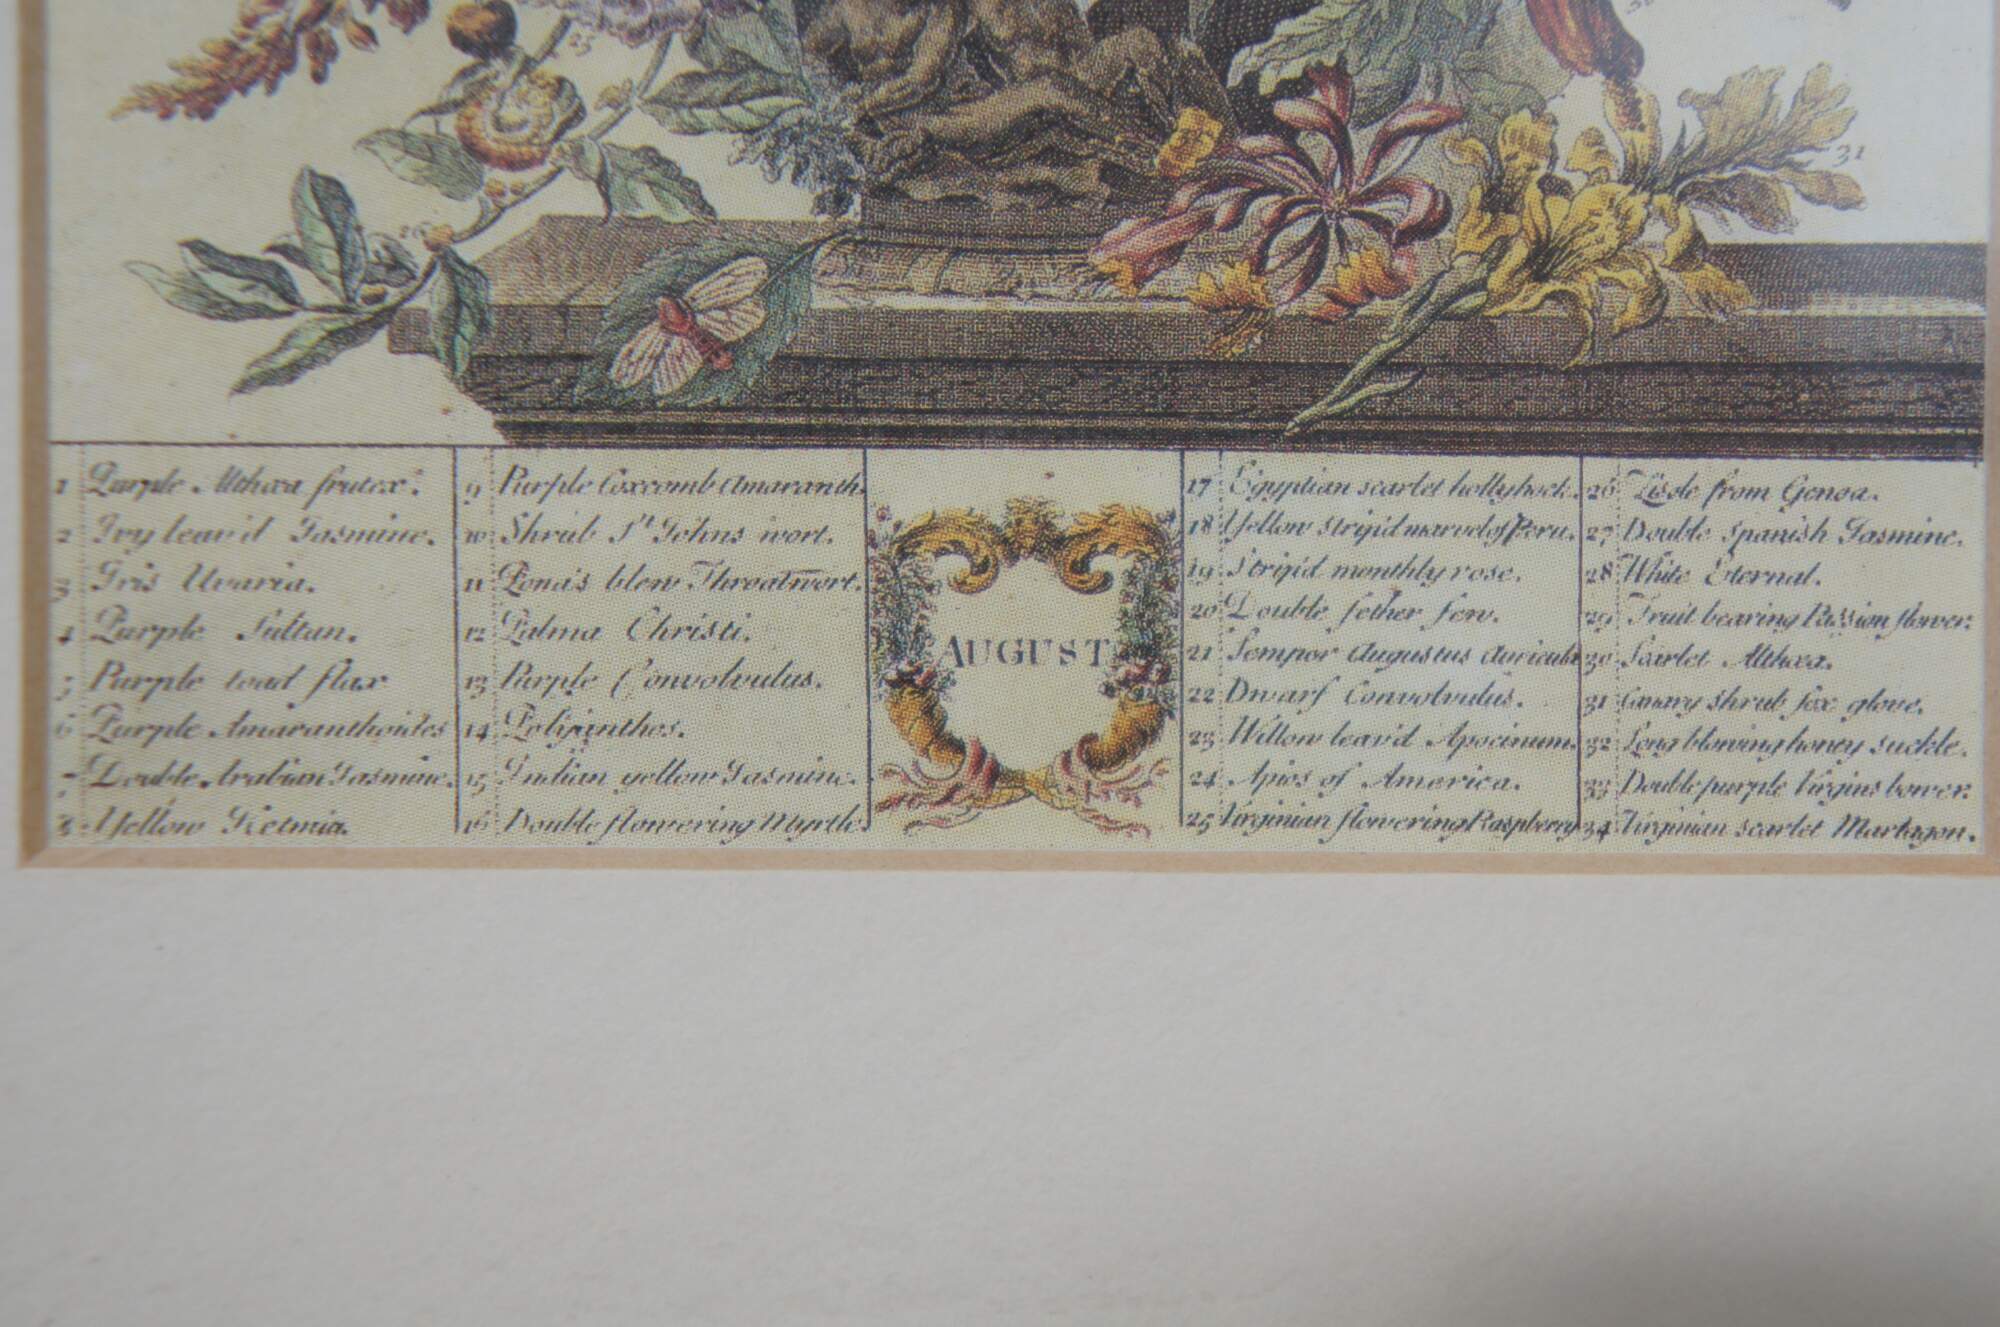 25
26
31
1 Purple Althæa frutex.
2 Ivy leav'd Jasmine.
3 Iris Uvaria.
4 Purple Sultan.
5 Purple toad flax
6 Purple Amaranthoides
7 Double Arabian Jasmine.
8 Yellow Ketmia.
9 Purple Coxcomb Amaranth.
10 Shrub St Johns wort.
11 Pona's blew Throatwort.
12 Palma Christi.
13 Purple Convolvulus.
14 Polijanthos.
15 Indian yellow Jasmine.
16 Double flowering Myrtle.
AUGUST
17 Egyptian scarlet hollyhock.
18 Yellow strip'd marvel of Peru.
19 Strip'd monthly rose.
20 Double fether few.
21 Semper Augustus Auricula
22 Dwarf Convolvulus.
23 Willow leav'd Apocinum.
24 Apios of America.
25 Virginian flowering Raspberry
26 from Genoa.
27 Double spanish Jasmine.
28 White Eternal.
29 Fruit bearing Passion flower.
30 Scarlet Althæa.
31 Canary shrub fox glove.
32 Long blowing honey suckle.
33 Double purple Virgins bower.
34 Virginian scarlet Martagon.